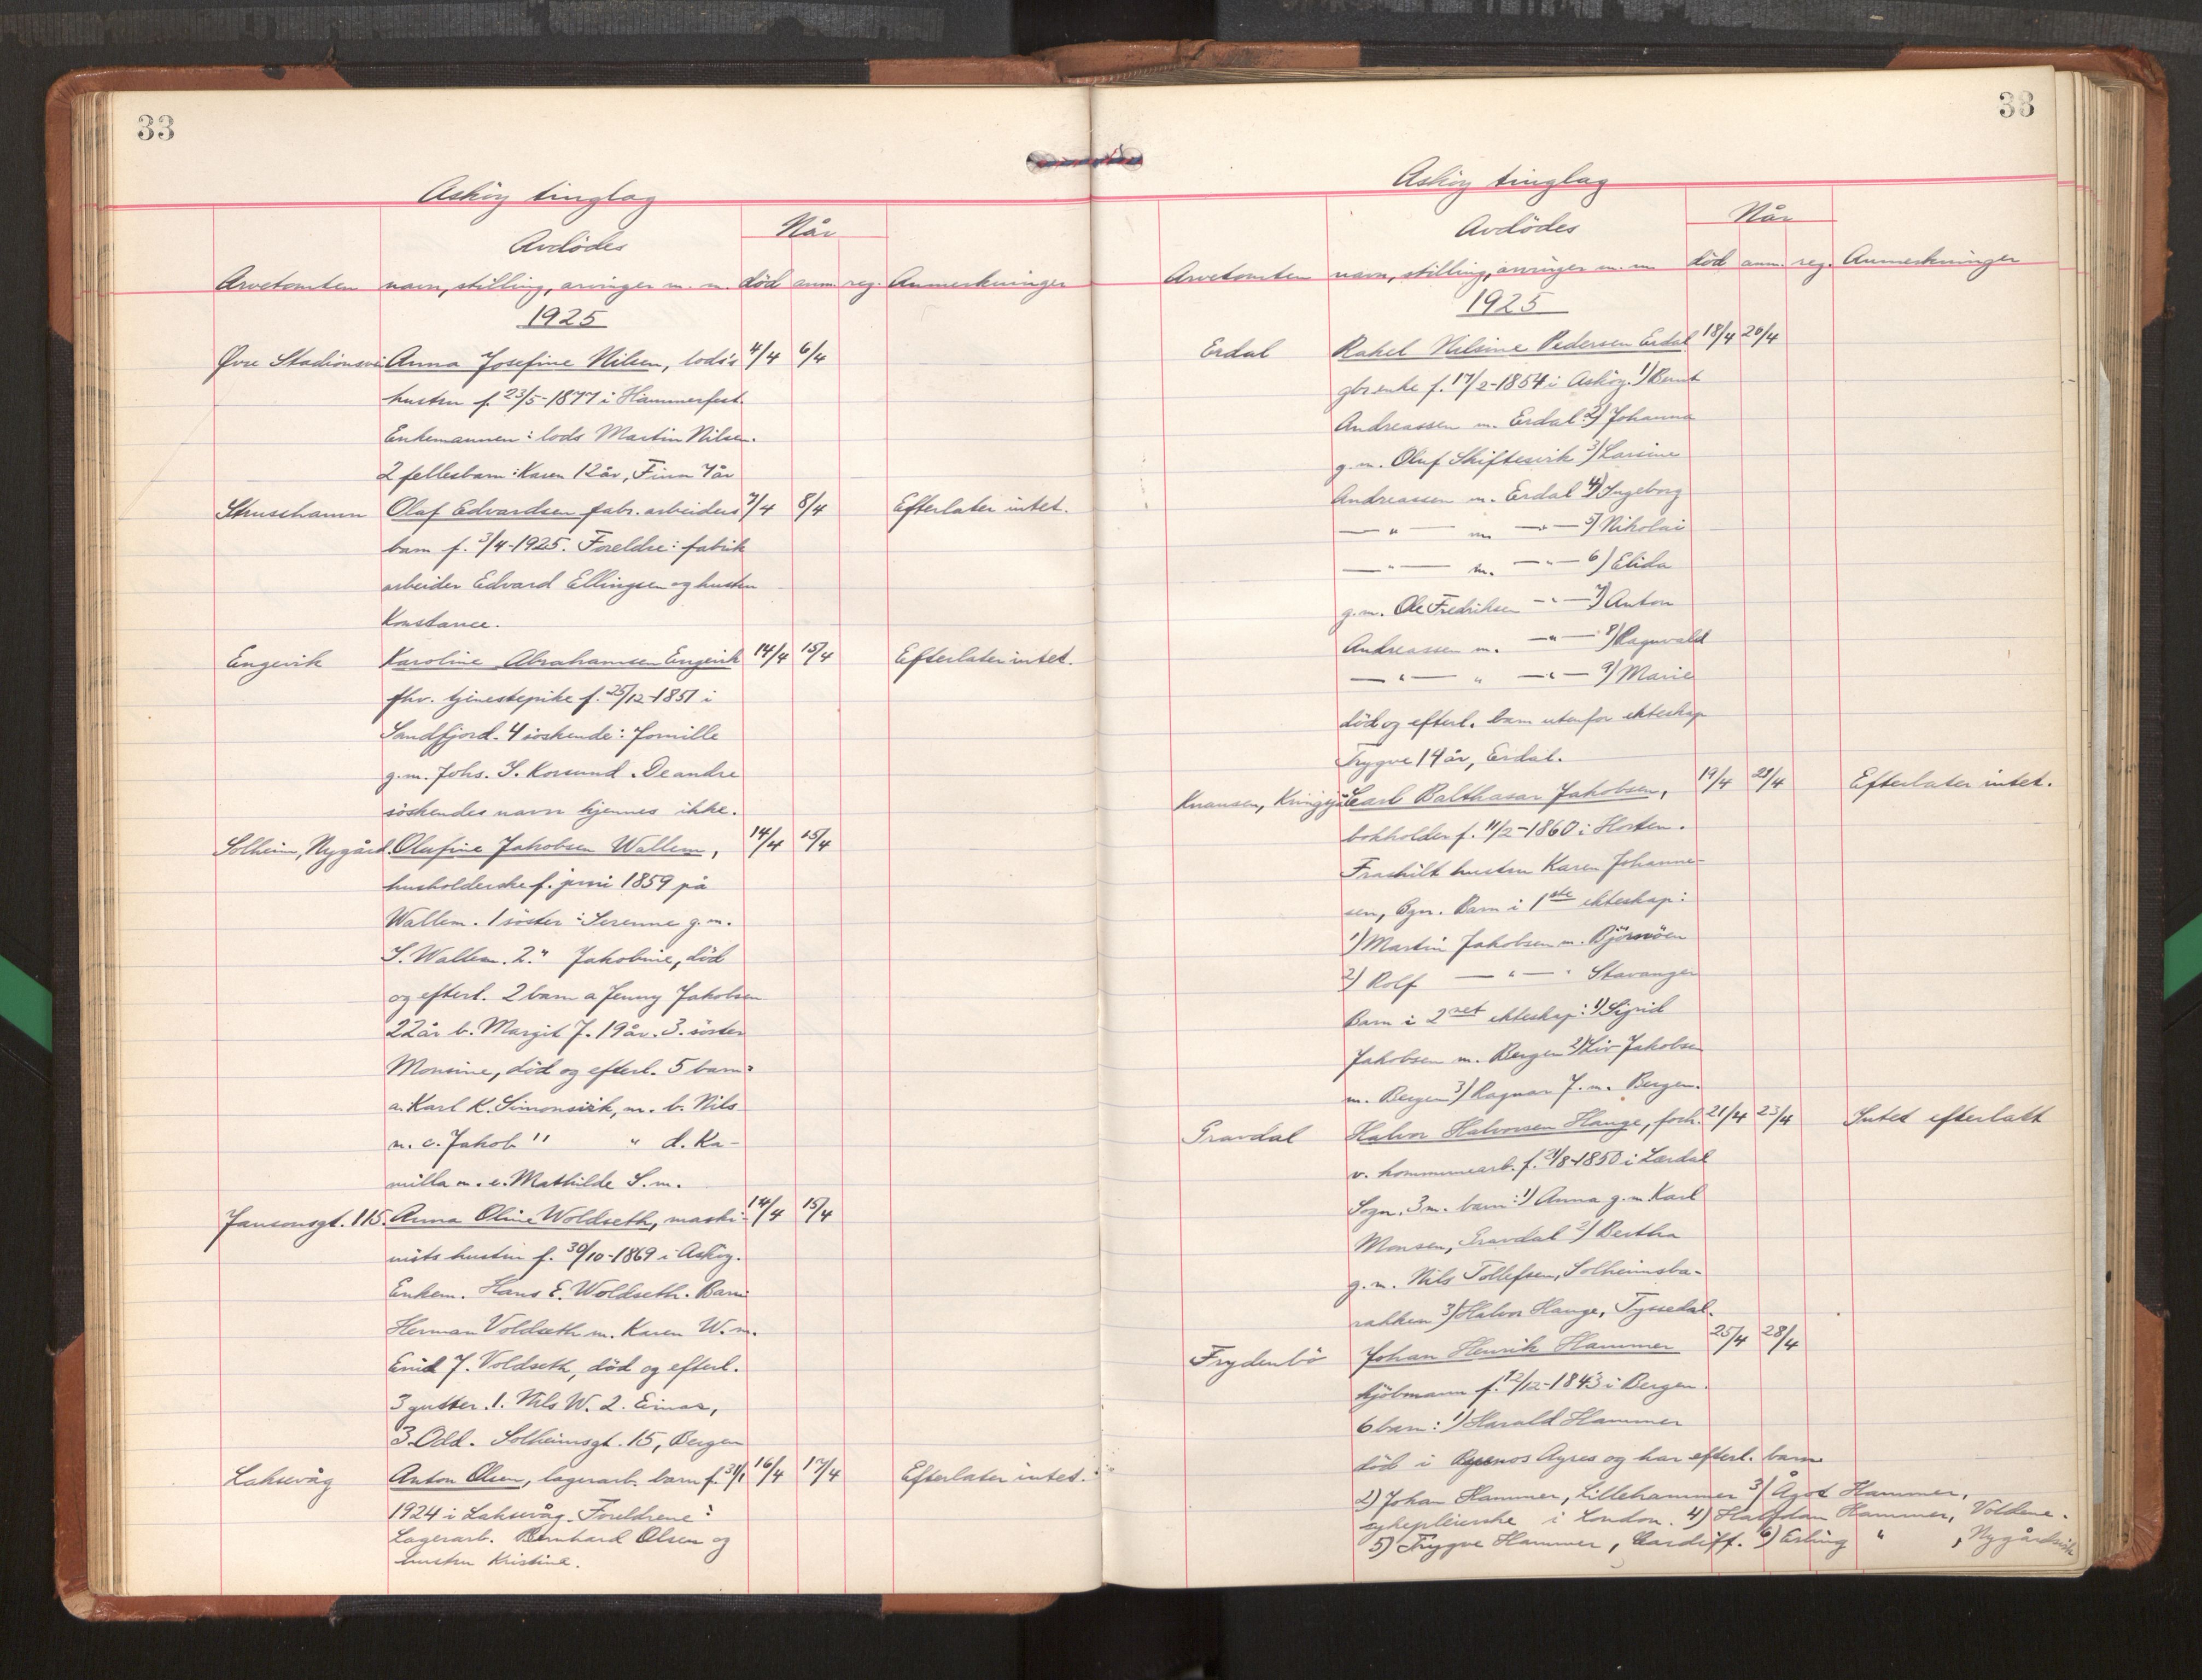 33
Askøy tinglag
Avdødes
Når
Arvetomten navn, stilling, arvinger m. m. død anm. reg. Anmerkninger
1925
Øvre Stadionsvei Anna Josefine Nilsen, lods's 4/4 6/4
hustru f. 23/5-1877 i Hammerfest.
Enkemannen: lods Martin Nilsen.
2 fellesbarn: Karen 12 år, Finn 7 år
Strusshamn Olaf Edvardsen fabr. arbeiders 7/4 8/4 Efterlater intet.
barn f. 3/4-1925. Foreldre: fabrik
arbeider Edvard Ellingsen og hustru
Konstance.
Engevik Karoline Abrahamsen Engevik 14/4 15/4 Efterlater intet.
fhv. tjenestepike f. 25/12-1851 i
Sandfjord. 4 søskende:
g.m. Johs. S. Korsund. De andre
søskendes navn kjennes ikke.
Solheim, Nygård. Olufine Jakobsen Wallem, 14/4 15/4
husholderske f. juni 1859 på
Wallem. 1 søster: Serenne g.m.
S. Wallem. 2. " Jakobine, død
og efterl. 2 barn a Jenny Jakobsen
22 år b. Margit J. 19 år. 3. søster
Monsine, død og efterl. 5 barn:
a. Karl K. Simonsvik, m. b. Nils
m. c. Jakob " " d. Ka-
milla m. e. Mathilde S. m.
Jansonsgt. 115. Anna Oline Woldseth, maski- 14/4 15/4
nists hustru f. 30/10-1869 i Askøy.
Enkem. Hans E. Woldseth. Barn
Herman Voldseth m. Karen W. m.
J. Voldseth, død og efterl.
3 gutter. 1. Nils W. 2. Einar,
3. Odd. Solheimsgt. 15, Bergen
Laksevåg Anton Olsen, lagerarb. barn f. 31/1 16/4 17/4 Efterlater intet.
1924 i Laksevåg. Foreldrene:
Lagerarb. Bernhard Olsen og
hustru Kristine.
33
Askøy tinglag
Avdødes
Når
Arvetomten navn, stilling, arvinger m. m. død anm. reg. Anmerkninger
1925
Erdal Rakel Nilsine Pedersen Erdal 18/4 20/4
gbr. enke f. 17/2-1854 i Askøy. 1) Bernt
Andreassen m. Erdal 2) Johanna
g.m. Oluf Skiftesvik 3) Larsine
Andreassen m. Erdal 4) Ingeborg
— " — m — " — 5) Nikolai
— " — m. — " — 6) Elida
g.m. Ole Fredriksen — " — 7) Anton
Andreassen m. — " — 8) Ragnvald
— " — " — " — 9) Marie
død og efterl. barn utenfor ekteskap
Trygve 14 år, Erdal.
Knausen, Kringsjå Carl Balthasar Jakobsen, 19/4 21/4 Efterlater intet.
bokholder f. 11/2-1860 i Horten.
Fraskilt hustru Karen Johanne-
sen, Barn i 1ste ekteskap:
1) Martin Jakobsen m. Bjørnøen
2) Rolf — " — " Stavanger
Barn i 2net ekteskap: 1) Sigrid
Jakobsen m. Bergen 2) Liv Jakobsen
m. Bergen 3) Ragnar J. m. Bergen.
Gravdal Halvor Halvorsen Hauge, forh. 21/4 23/4 Intet efterlatt
v. kommunearb. f. 21/8-1850 i Lærdal
Sogn. 3 m. barn: 1) Anna g.m. Karl
Monsen, Gravdal 2) Bertha
g.m. Nils Tollefsen, Solheimsba-
rakken 3) Halvor Hauge, Tyssedal.
Frydenbø Johan Henrik Hammer 25/4 28/4
kjøbmann f. 12/12-1843 i Bergen.
6 barn: 1) Harald Hammer
død i Buenos Ayres og har efterl. barn
2) Johan Hammer, Lillehammer 3) Ågot Hammer,
sykepleierske i London. 4) Halfdan Hammer, Voldene.
5) Trygve Hammer, Cardiff. 6) Erling " , Nygårdsvik